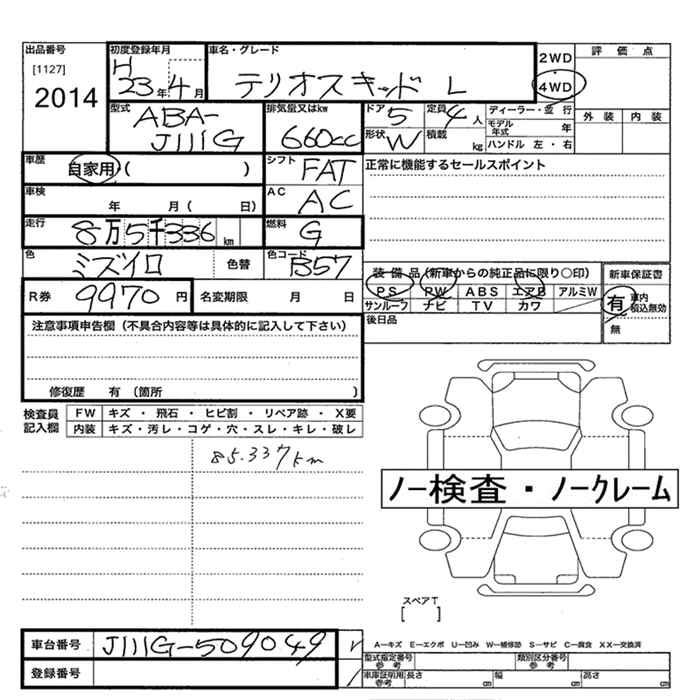 出品番号
[1127]
2014
初度登録年月
H
23年 4月
車名・グレード
テリオスキッド L
2WD
4WD
評価点
外装 内装
型式
ABA-
J111G
排気量又はkw
660cc
ドア 5
定員 4人
ディーラー・並行
モデル年式 年
形状 W
積載 kg
ハンドル 左・右
車歴
自家用・( )
シフト FAT
正常に機能するセールスポイント
車検
年 月( 日)
AC AC
走行
8万5千336km
燃料 G
色
ミズイロ 色替
色コード B57
装備品(新車からの純正品に限り○印)
新車保証書
PS PW ABS エアB アルミW
サンルーフ ナビ TV カワ
有 車内積込無効
無
R券 9970円
名変期限 月 日
後日品
注意事項申告欄(不具合内容等は具体的に記入して下さい)
修復歴 有(箇所 )
検査員記入欄
FW キズ・飛石・ヒビ割・リペア跡・X要
内装 キズ・汚レ・コゲ・穴・スレ・キレ・破レ
85.337km
ノー検査・ノークレーム
スペアT
[ ]
車台番号 J111G-509049
登録番号
A―キズ E―エクボ U―凹み W―補修跡 S―サビ C―腐食 XX―交換済
型式指定番号 参考
類別区分番号 参考
車庫証明用 参考
長さ cm
幅 cm
高さ cm